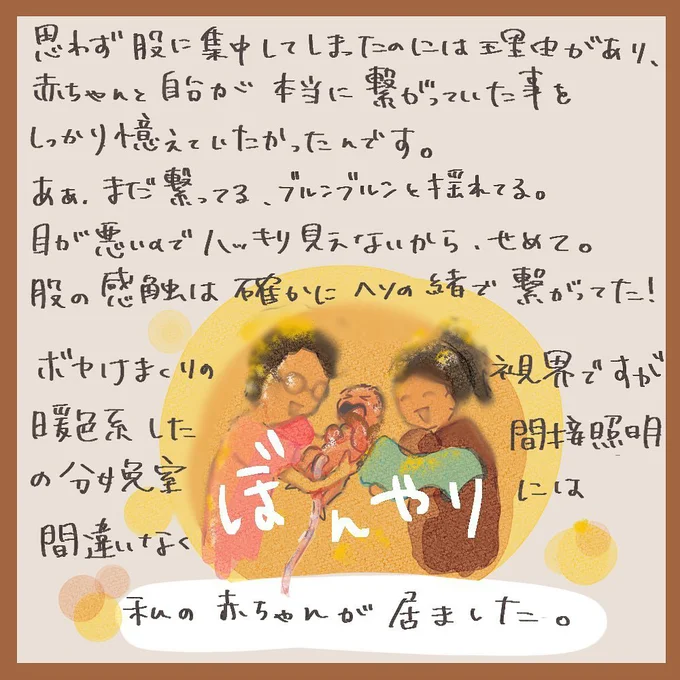 思わず股に集中してしまったのには理由があり、
赤ちゃんと自分が本当に繋がっていた事を
しっかり憶えていたかったんです。
あぁ、まだ繋ってる、ブルンブルンと揺れてる。
目が悪いのでハッキリ見えないから、せめて。
股の感触は確かにヘソの緒で繋がってた!
ボヤけまくりの視界ですが
暖色系した間接照明
の分娩室には
間違いなく
ぼんやり
私の赤ちゃんが居ました。